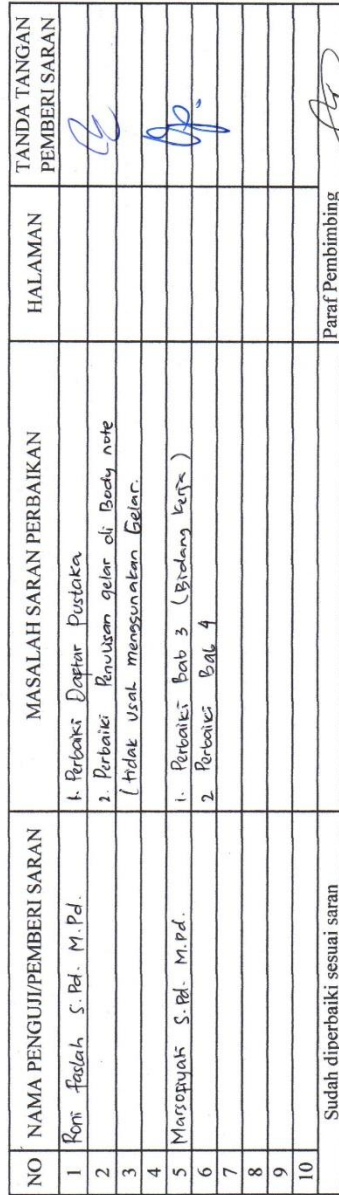 NO NAMA PENGUJI/PEMBERI SARAN MASALAH SARAN PERBAIKAN HALAMAN TANDA TANGAN PEMBERI SARAN
1 Roni Faslah S.Pd. M.Pd. 1. Perbaiki Daftar Pustaka
2 2. Perbaiki Penulisan gelar di Body note
3 (tidak usah menggunakan Gelar.
4
5 Marsofiyati S.Pd. M.Pd. 1. Perbaiki Bab 3 (Bidang Kerja)
6 2 Perbaiki Bab 4
7
8
9
10
Sudah diperbaiki sesuai saran Paraf Pembimbing